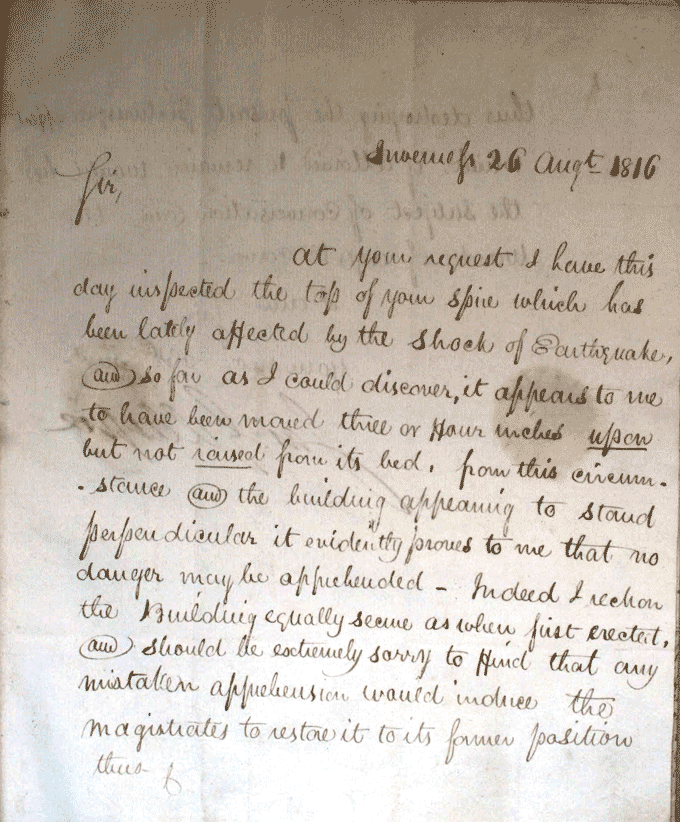 Inverness 26 Augt 1816
Sir,
At your request I have this
day inspected the top of your spire which has
been lately affected by the shock of Earthquake,
and so far as I could discover, it appears to me
to have been moved three or four inches upon
but not raised from its bed. from this circum-
- stance and the building appearing to stand
perpendicular it evidently proves to me that no
danger may be apprehended - Indeed I reckon
the Building equally secure as when first erected,
and should be extremely sorry to find that any
mistaken apprehension would induce the
magistrates to restore it to its former position
thus